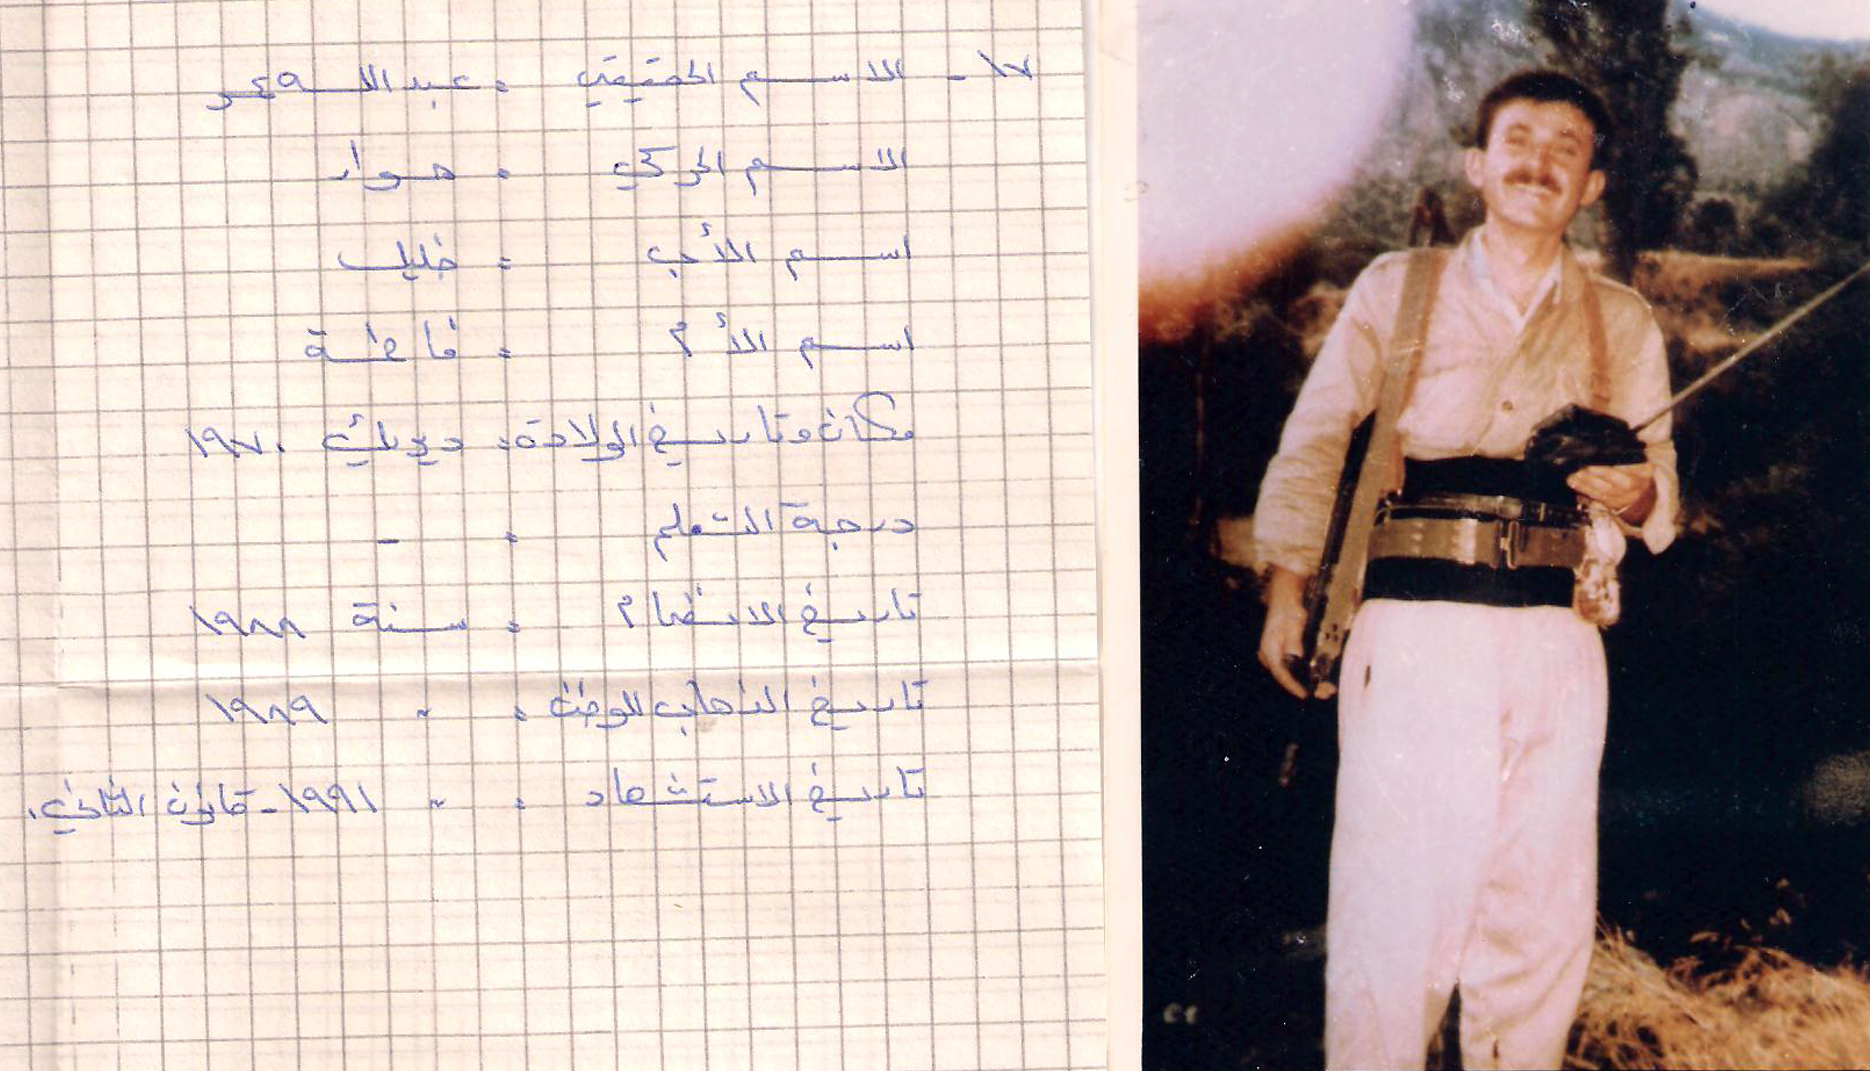 ١٧ - الاسم الحقيقي : عبد الله
الاسم الحركي : هوار
اسم الأب : خليل
اسم الأم : فاطمة
مكان وتاريخ الولادة : ديريك ١٩٧٠
درجة التعلم : -
تاريخ الانضمام : سنة ١٩٨٨
تاريخ الذهاب للوطن : ~ ١٩٨٩
تاريخ الاستشهاد : ~ ١٩٩١ - كانون الثاني.